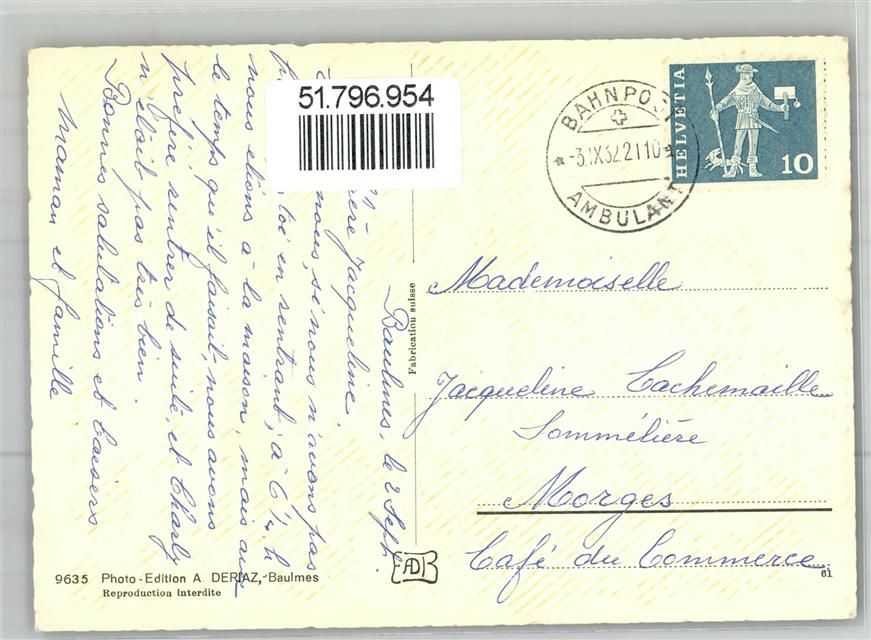 Baulmes, le 2 Sept.
Jacqueline.
nous, si nous n'avons pas
toi en rentrant, à 6 ½ h
nous étions à la maison, mais avec
le temps qu'il faisait, nous avons
préféré rentrer de suite, et Charly
n'était pas très bien.
Bonnes salutations et baisers
Maman et famille
51.796.954
BAHNPOST
-3.IX.62.2110
AMBULANT
HELVETIA
10
Mademoiselle
Jacqueline Cachemaille
Sommélière
Morges
Café du Commerce
Fabrication suisse
9635 Photo-Edition A. DERIAZ, Baulmes
Reproduction interdite
AD
61